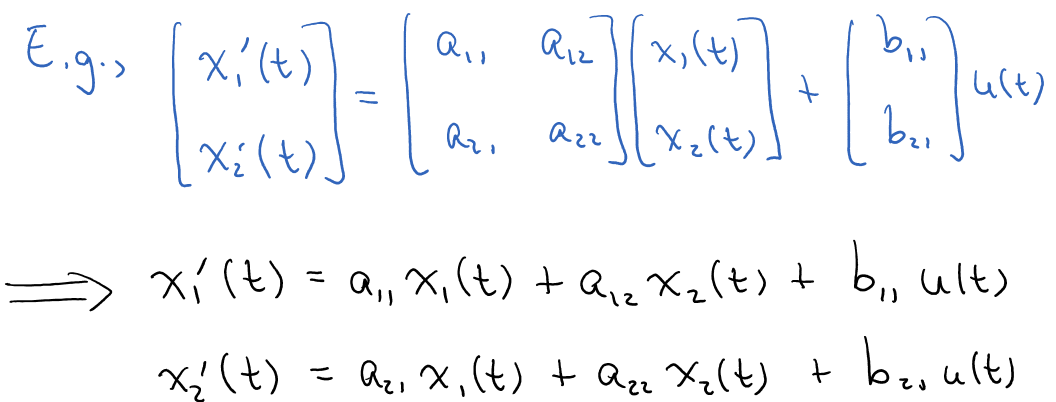 E.g., [x₁'(t) x₂'(t)] = [a₁₁ a₁₂ a₂₁ a₂₂] [x₁(t) x₂(t)] + [b₁₁ b₂₁] u(t)
⟹ x₁'(t) = a₁₁ x₁(t) + a₁₂ x₂(t) + b₁₁ u(t)
x₂'(t) = a₂₁ x₁(t) + a₂₂ x₂(t) + b₂₁ u(t)